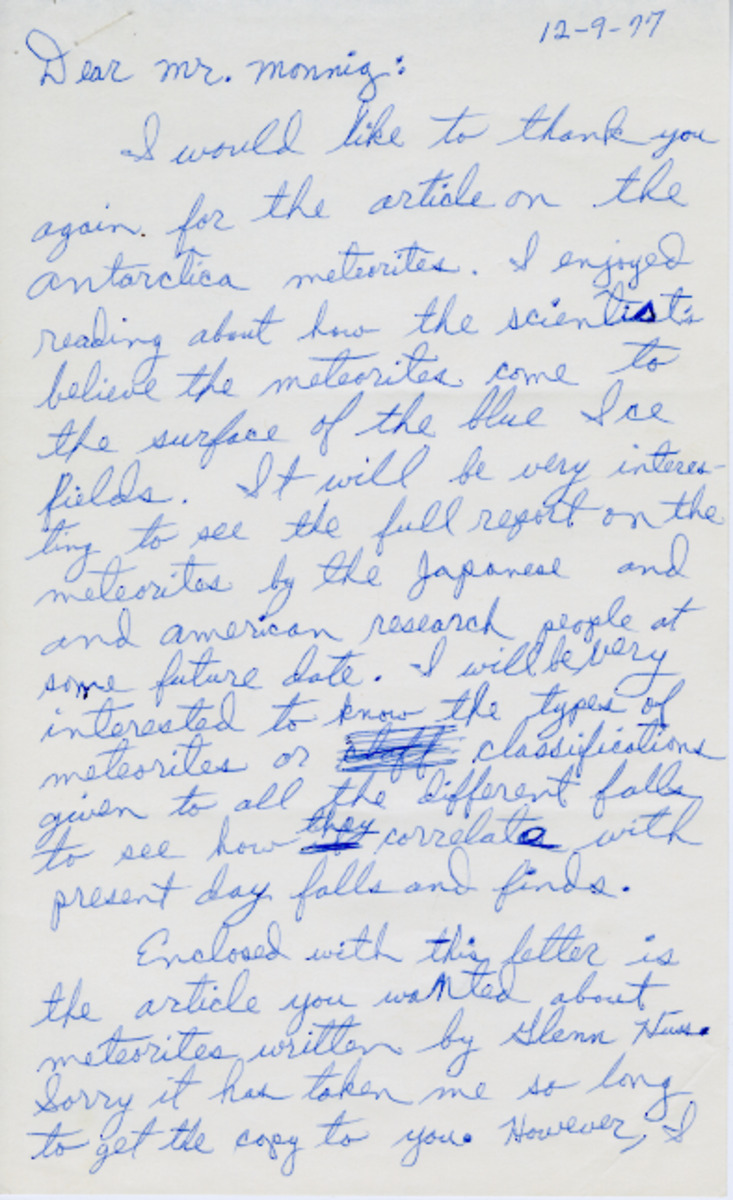 12-9-77
Dear Mr. Monnig:
I would like to thank you
again. for the article on the
antarctica meteorites. I enjoyed
reading about how the scientists
believe the meteorites come to
the surface of the blue Ice
fields. It will be very interes-
ting to see the full report on the
meteorites by the Japanese and
and american research people at
some future date. I will be very
interested to know the types of
meteorites or classifications
given to all the different falls
to see how they correlate with
present day falls and finds.
Enclosed with this letter is
the article you wanted about
meteorites written by Glenn Huss.
Sorry it has taken me so long
to get the copy to you. However, I